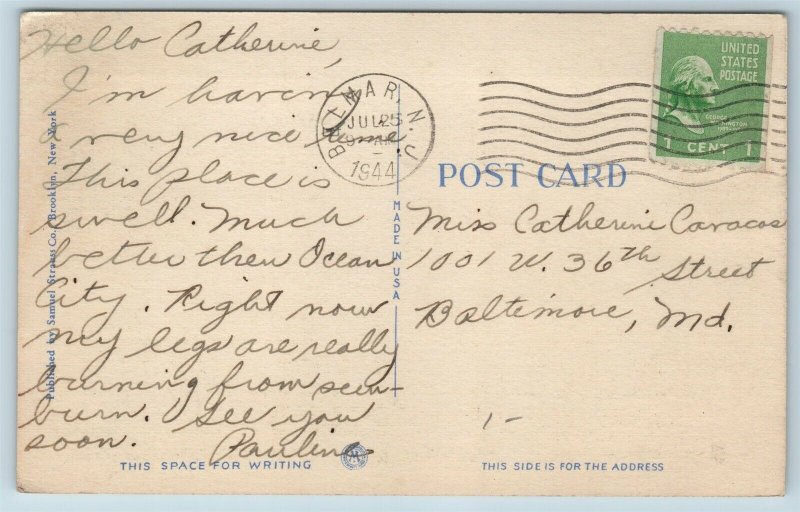 Hello Catherine,
I'm having
a very nice time.
This place is
swell. Much
better then Ocean
City. Right now
my legs are really
burning from sun-
burn. See you
soon. Pauline
THIS SPACE FOR WRITING
Published by Samuel Strauss Co., Brooklyn, New York
BELMAR, N.J.
JUL 25
9 AM
1944
UNITED
STATES
POSTAGE
GEORGE
WASHINGTON
1 CENT 1
POST CARD
MADE IN USA
Miss Catherine Caracos
1001 W. 36th Street
Baltimore, Md.
1-
THIS SIDE IS FOR THE ADDRESS